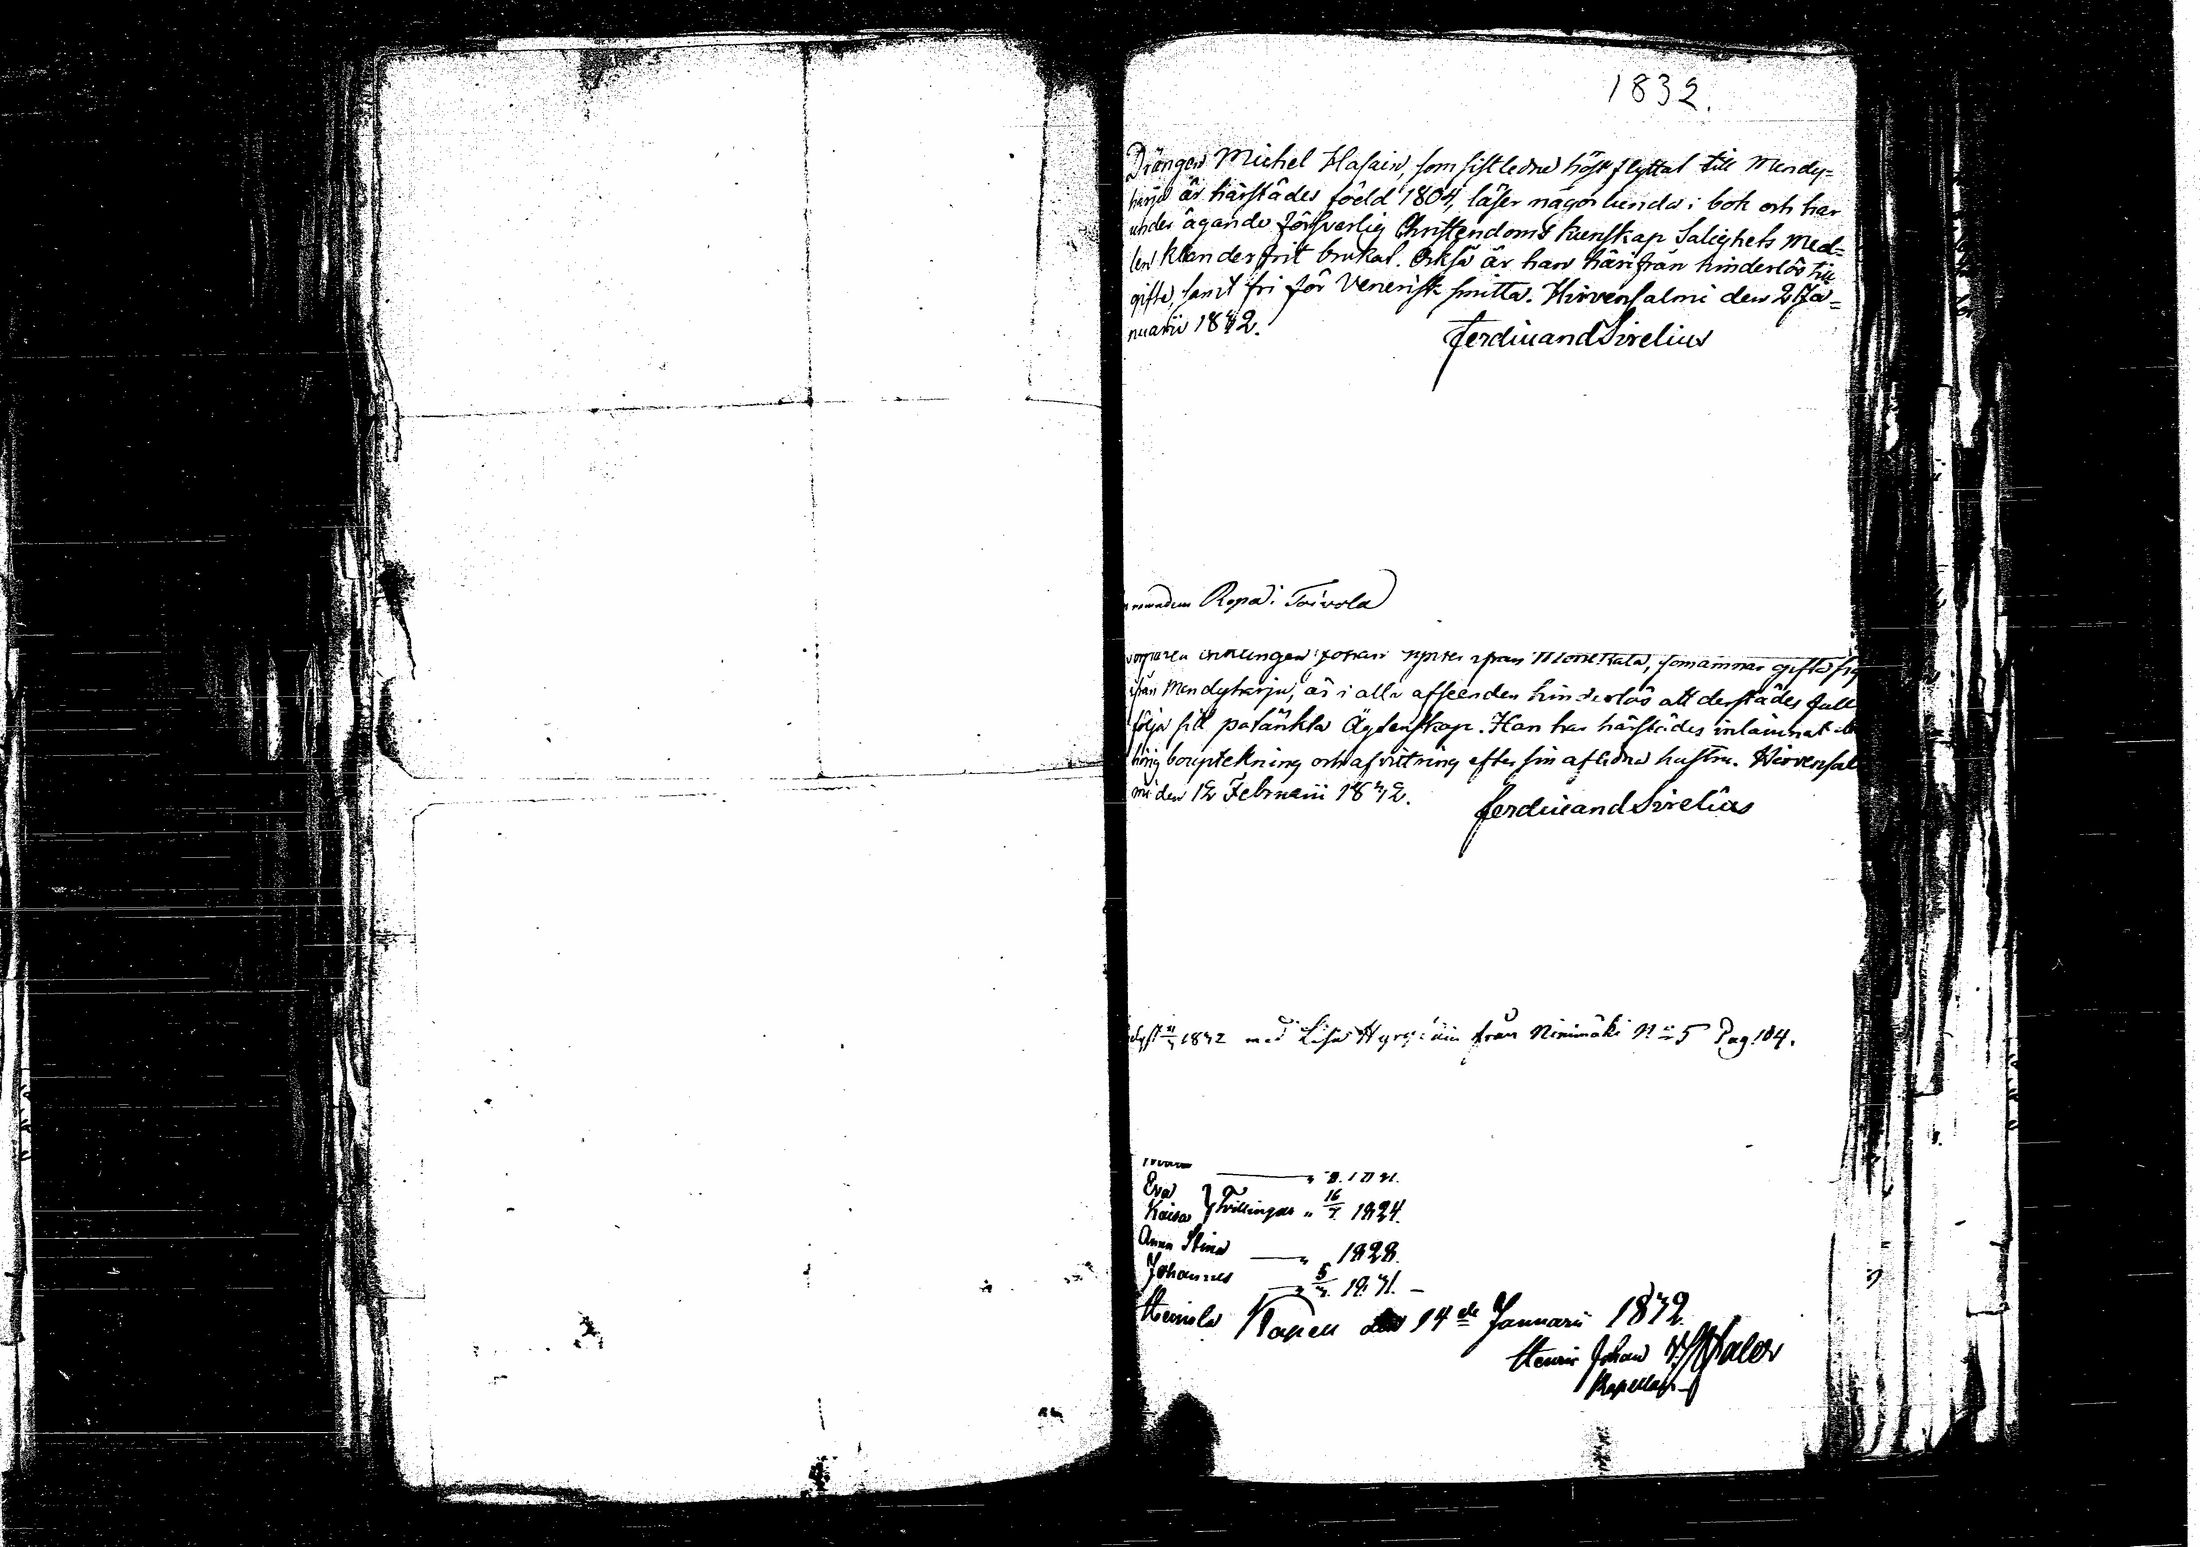 1832.
Drängen Michel Hasain, som sistledne höst flyttat till Mendy=
härju är härstädes född 1804, läser någorlunda i bok och har
under ägande försvarlig Christendoms kunskap Salighets Med=
len klanderfrit brukat. Också är han härifrån hinderlös till
gifte, samt fri för Venerisk smitta. Hirvensalmi den 21 Ja=
nuarii 1832.
Ferdinand Sirelius
Repo i Toivola
ifrån som ämnar gifta sig
ifrån Mendyharju, är i alla afseenden hinderlös att derstädes full
följa sitt påtänkta Ägtenskap. Han har härstädes inlämnat
bouptekning och afvittring efter sin aflidna hustru. Hirvensal
mi den 12 Februarii 1832.
Ferdinand Sirelius
1832 med Lisa från Niinimäki N:o 5 Pag 104.
Eva
Kaisa } Tvillingar " 16/7. 1824.
Anna Stina — " 1828.
Johannes — " 5/7. 1831. —
Heinola Kapell den 14de Januarii 1832.
Henric Johan
Kapellan